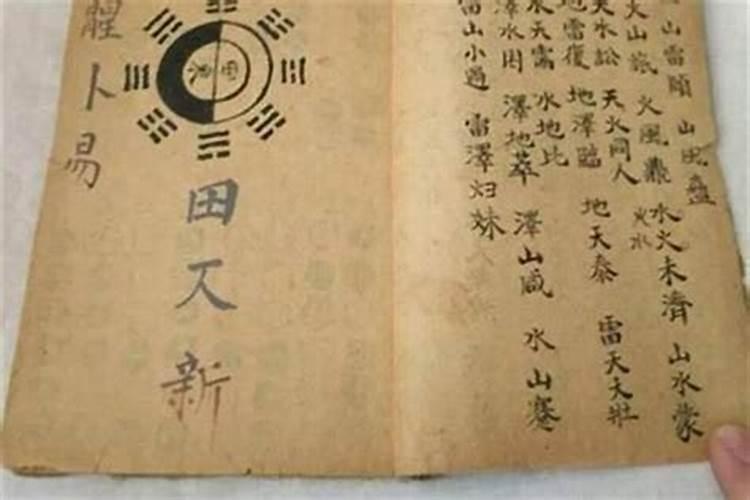 山雷頤 山風蠱
火山旅 火風鼎 水火未濟 山水蒙
火水
天水訟 天火同人 地天泰 雷天大壯
地雷復 地澤臨
水天需 水地比
澤水困 澤地萃 澤山咸 水山蹇
雷山小過 雷澤归妹
田 新
卜易